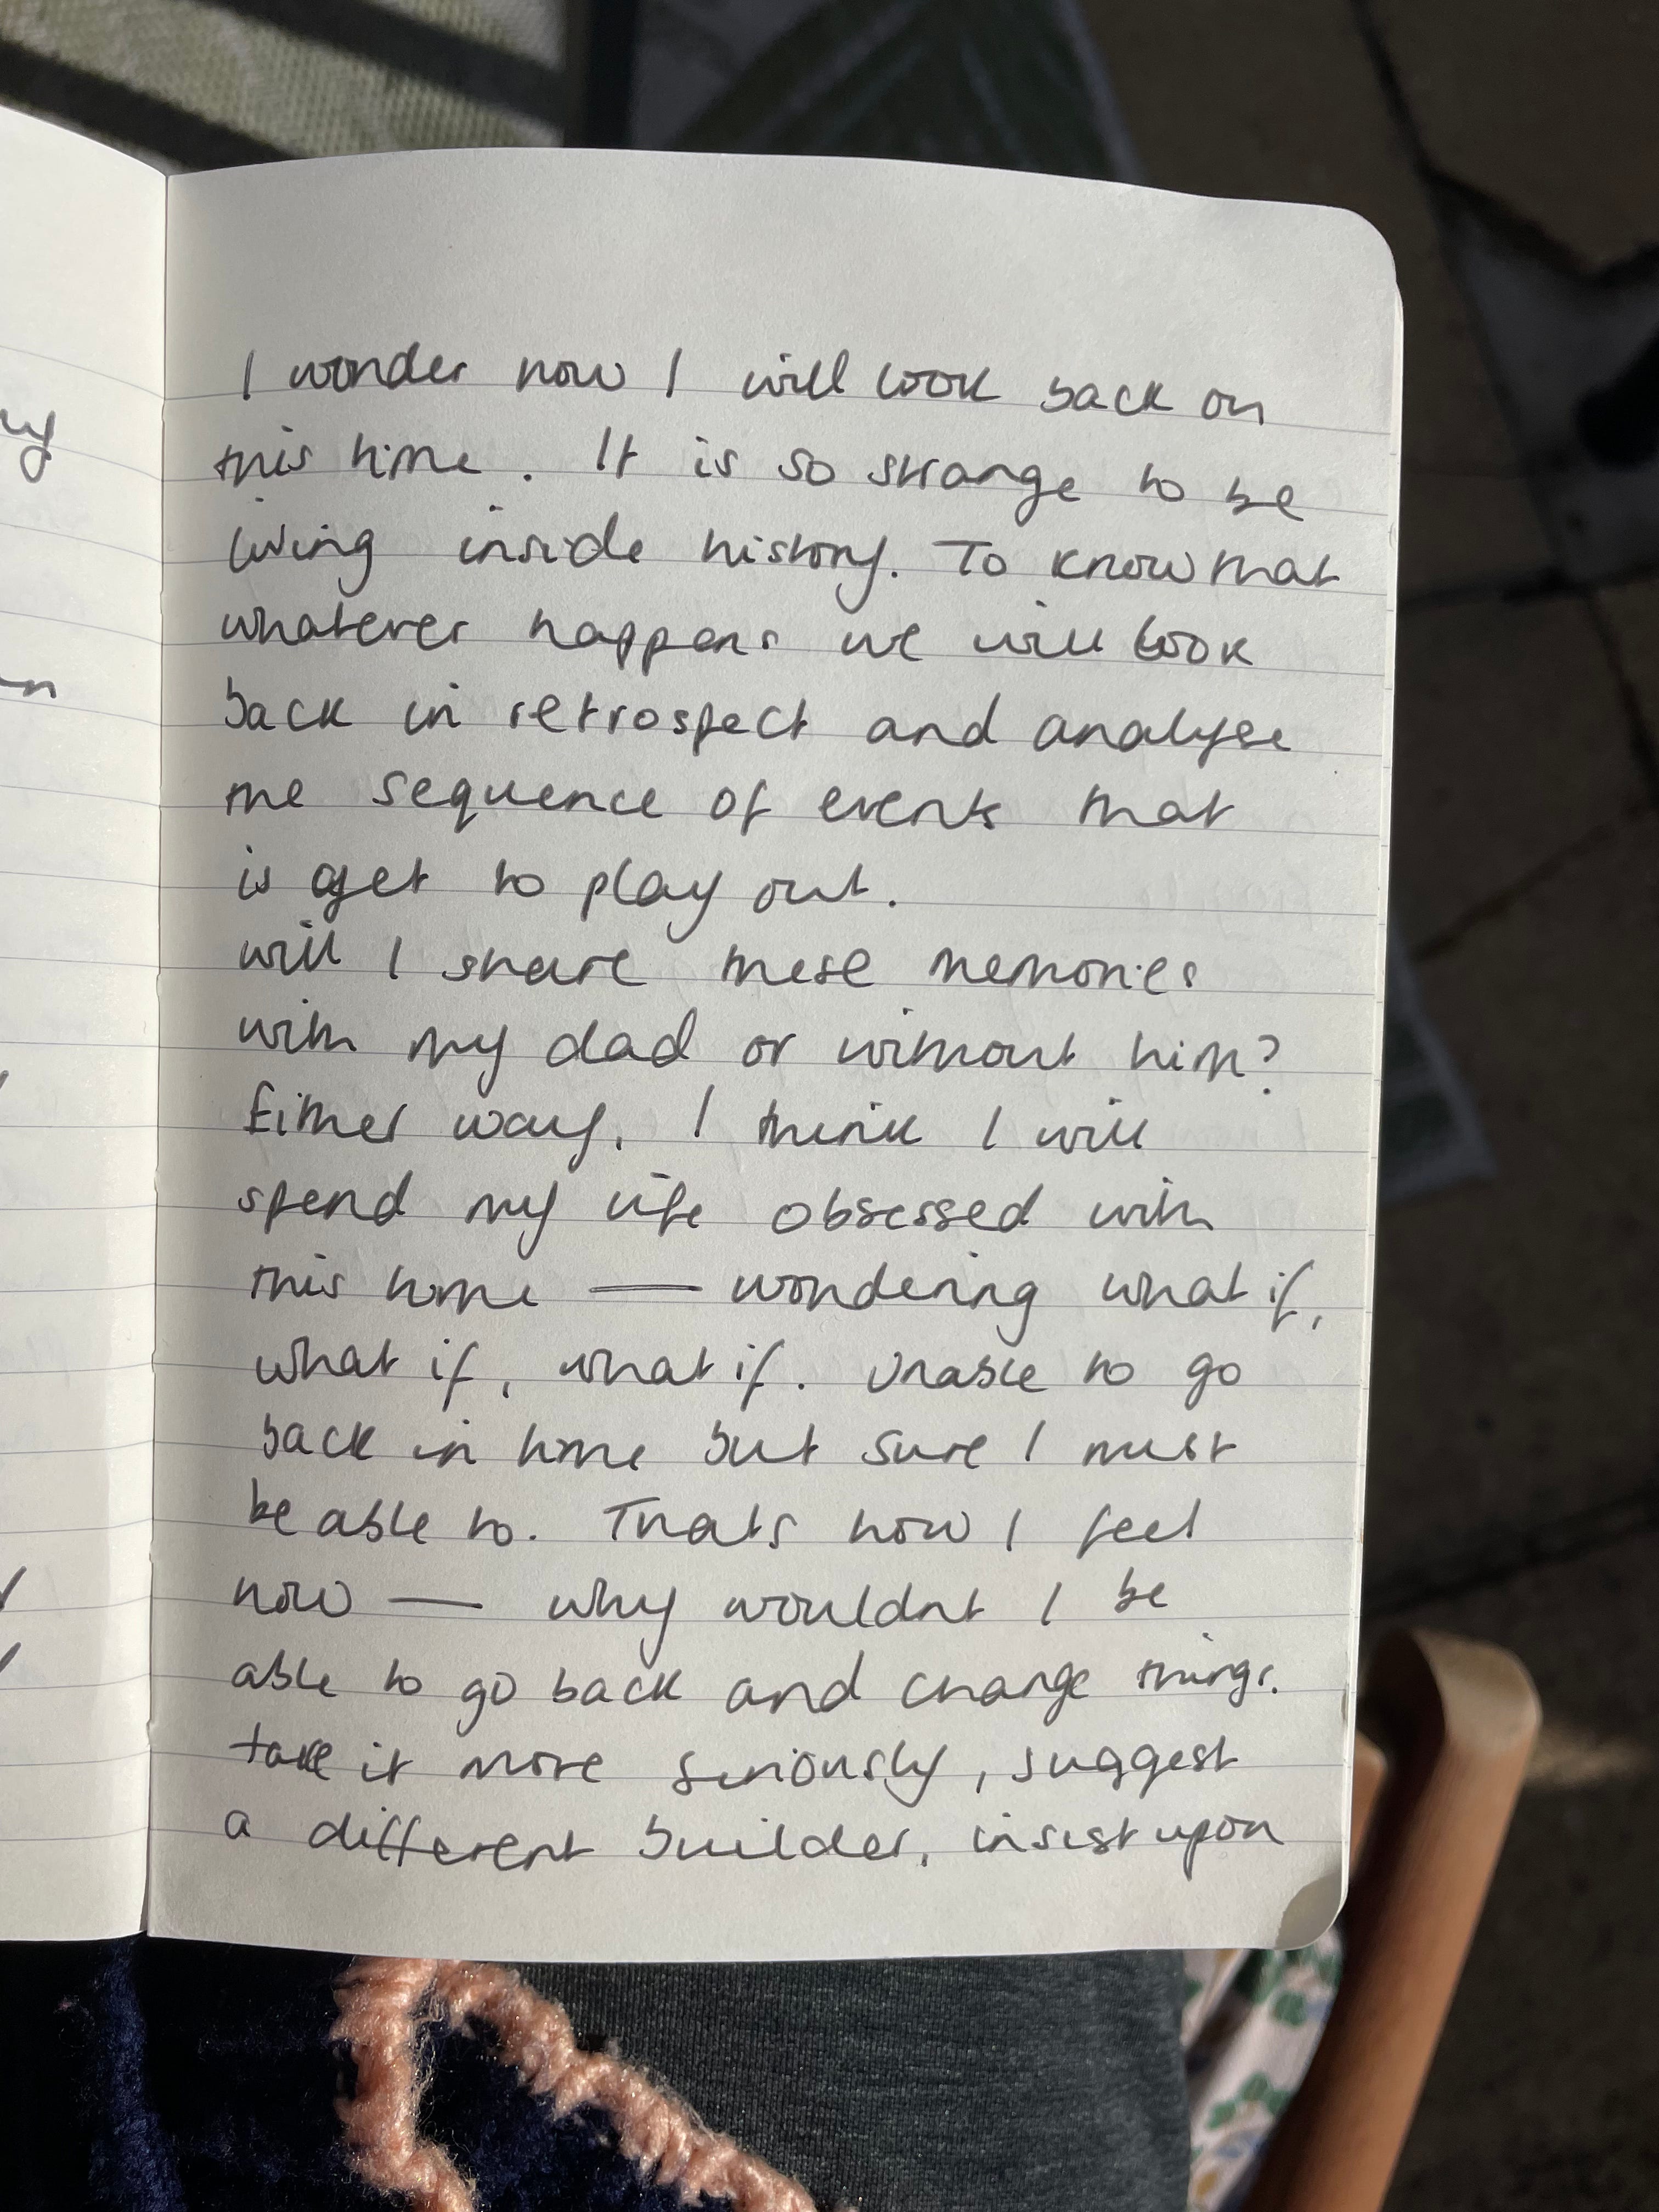 I wonder how I will look back on
this time. It is so strange to be
living inside history. To know that
whatever happens we will look
back in retrospect and analyse
the sequence of events that
is yet to play out.
will I share these memories
with my dad or without him?
Either way, I think I will
spend my life obsessed with
this time — wondering what if,
what if, what if. Unable to go
back in time but sure I must
be able to. Thats how I feel
now — why wouldnt I be
able to go back and change things.
take it more seriously, suggest
a different builder, insist upon